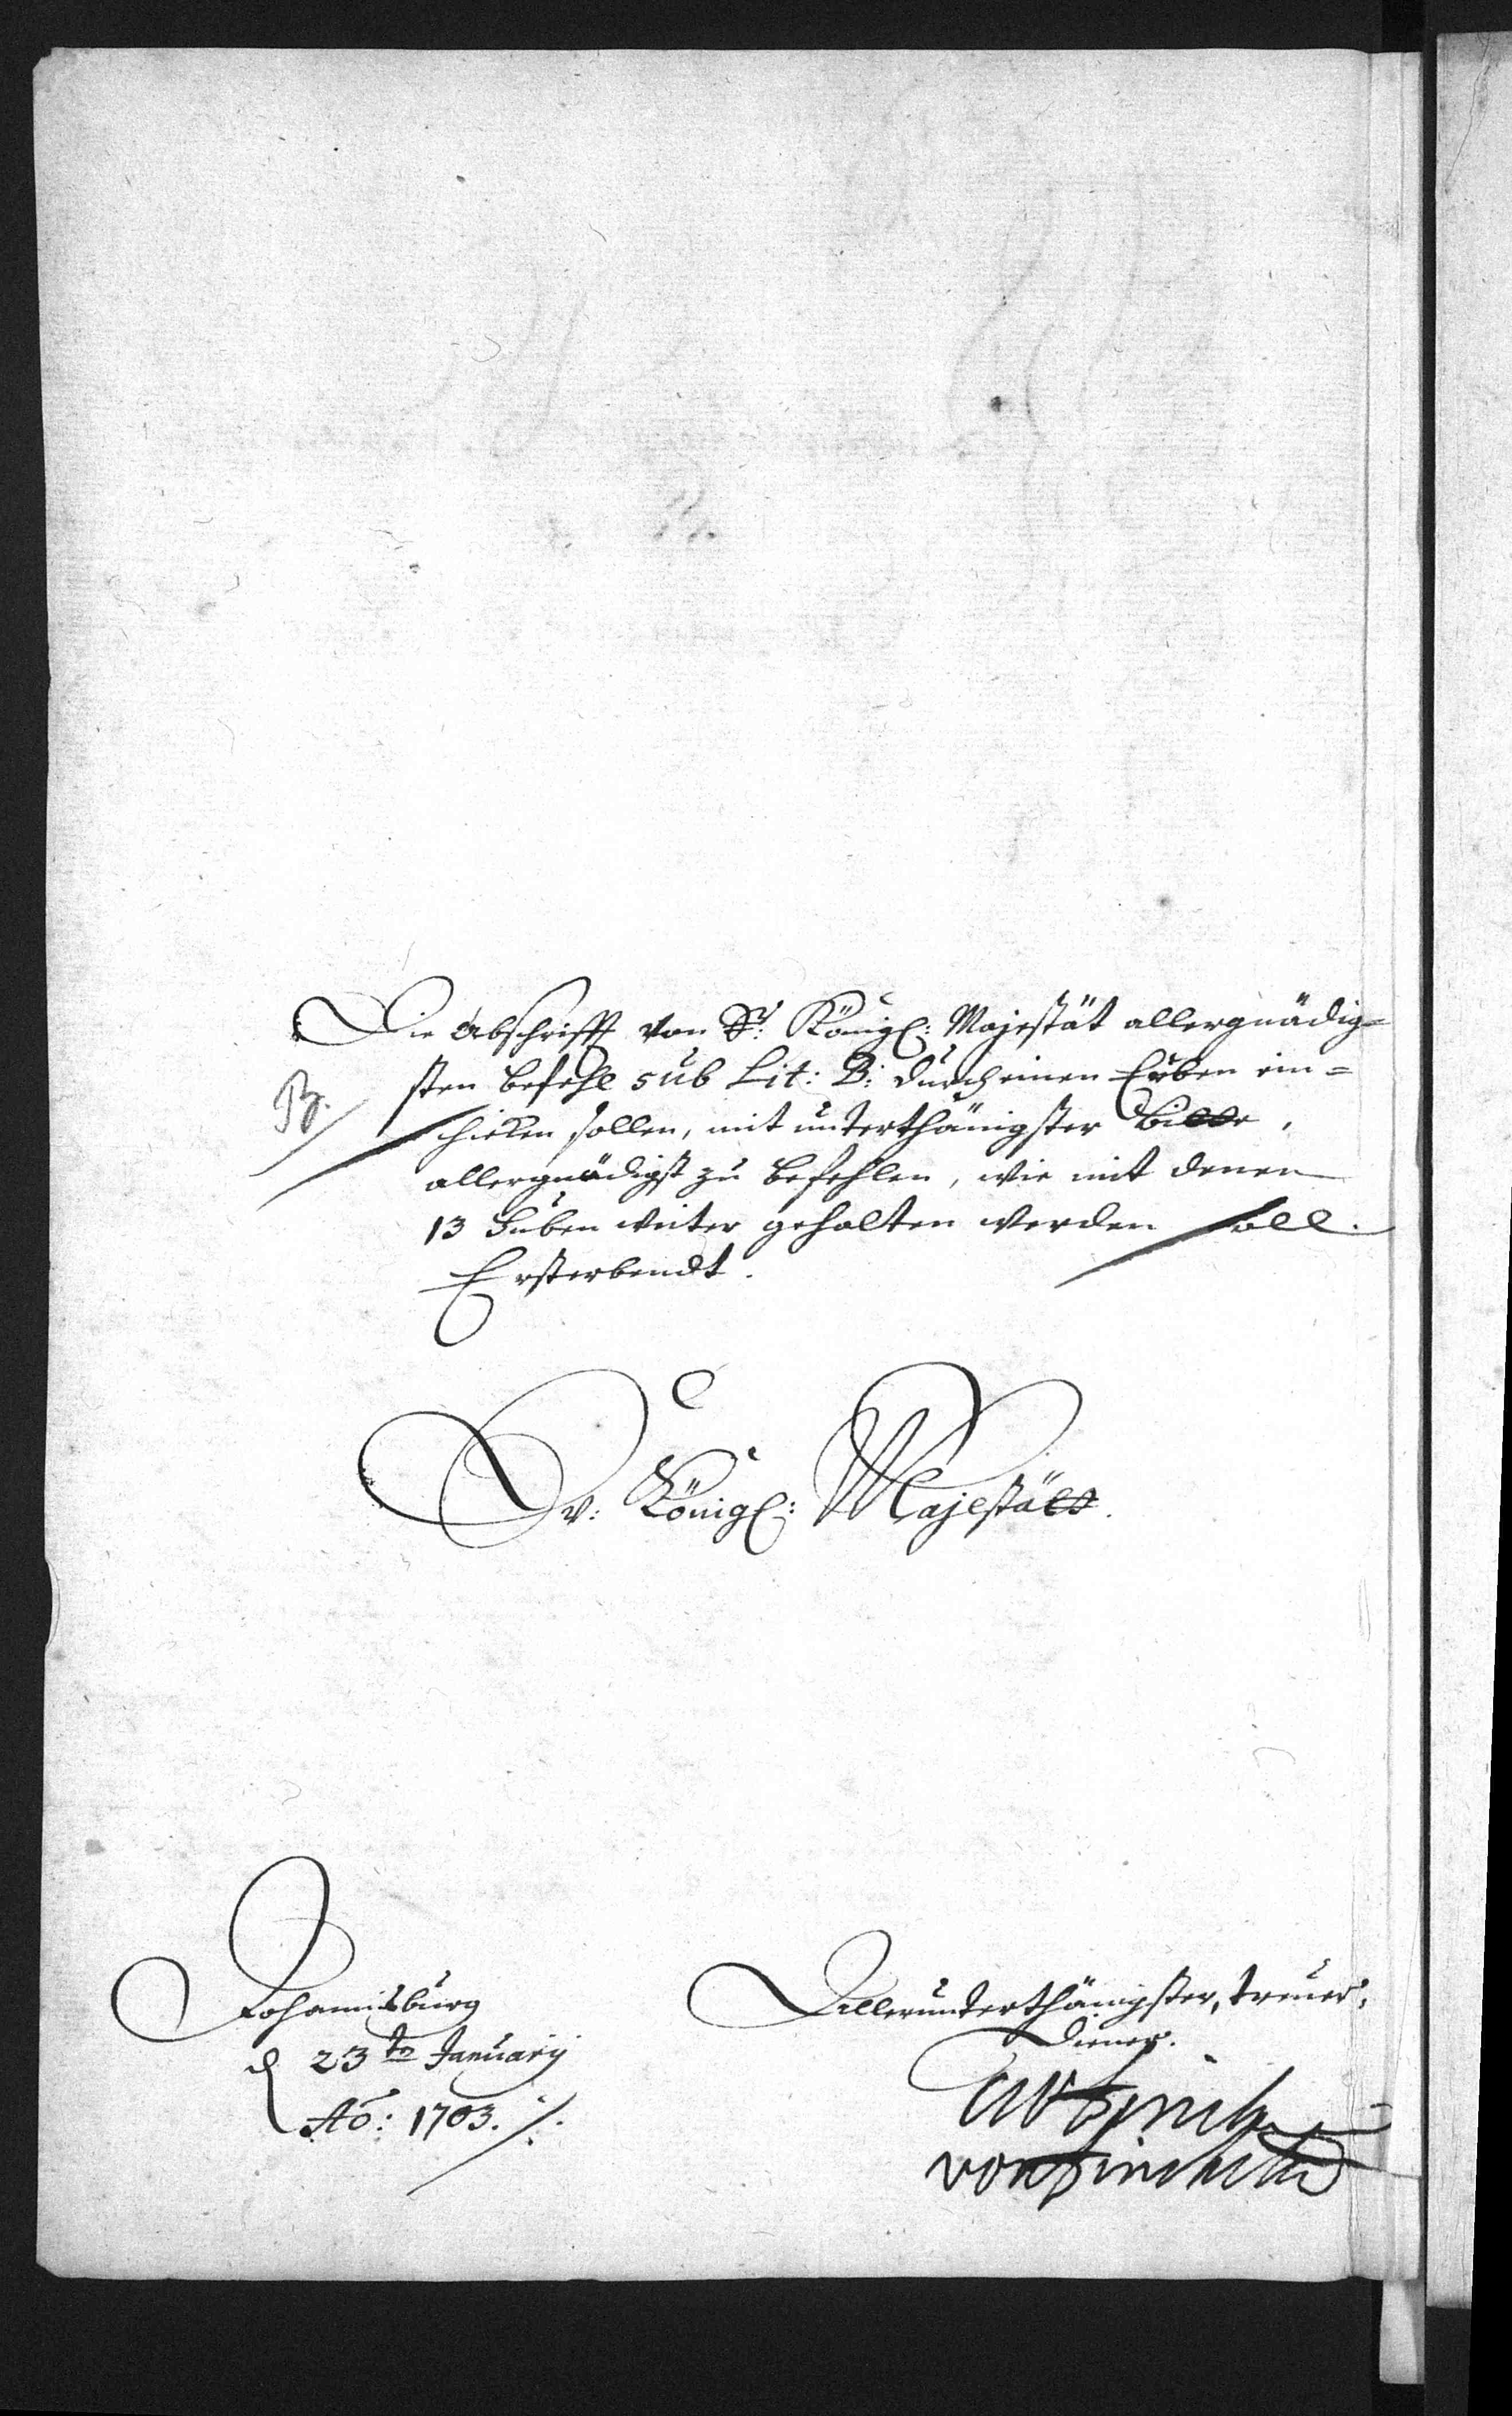 Die Abschrifft von Sr: Königl: Majestät allergnädig=
sten befehl sub Lit: B: durch einen Erben ein=
B.
schicken sollen, mit unterthänigster Bitte,
allergnädigst zu befehlen, wie mit denen
13 Huben weiter gehalten werden soll.
Ersterbendt.
Ew: Königl: Majestätt.
Johannisburg
d 23ten January
Ao: 1703. ./.
Allerunterthänigster, treuer,
Diener.